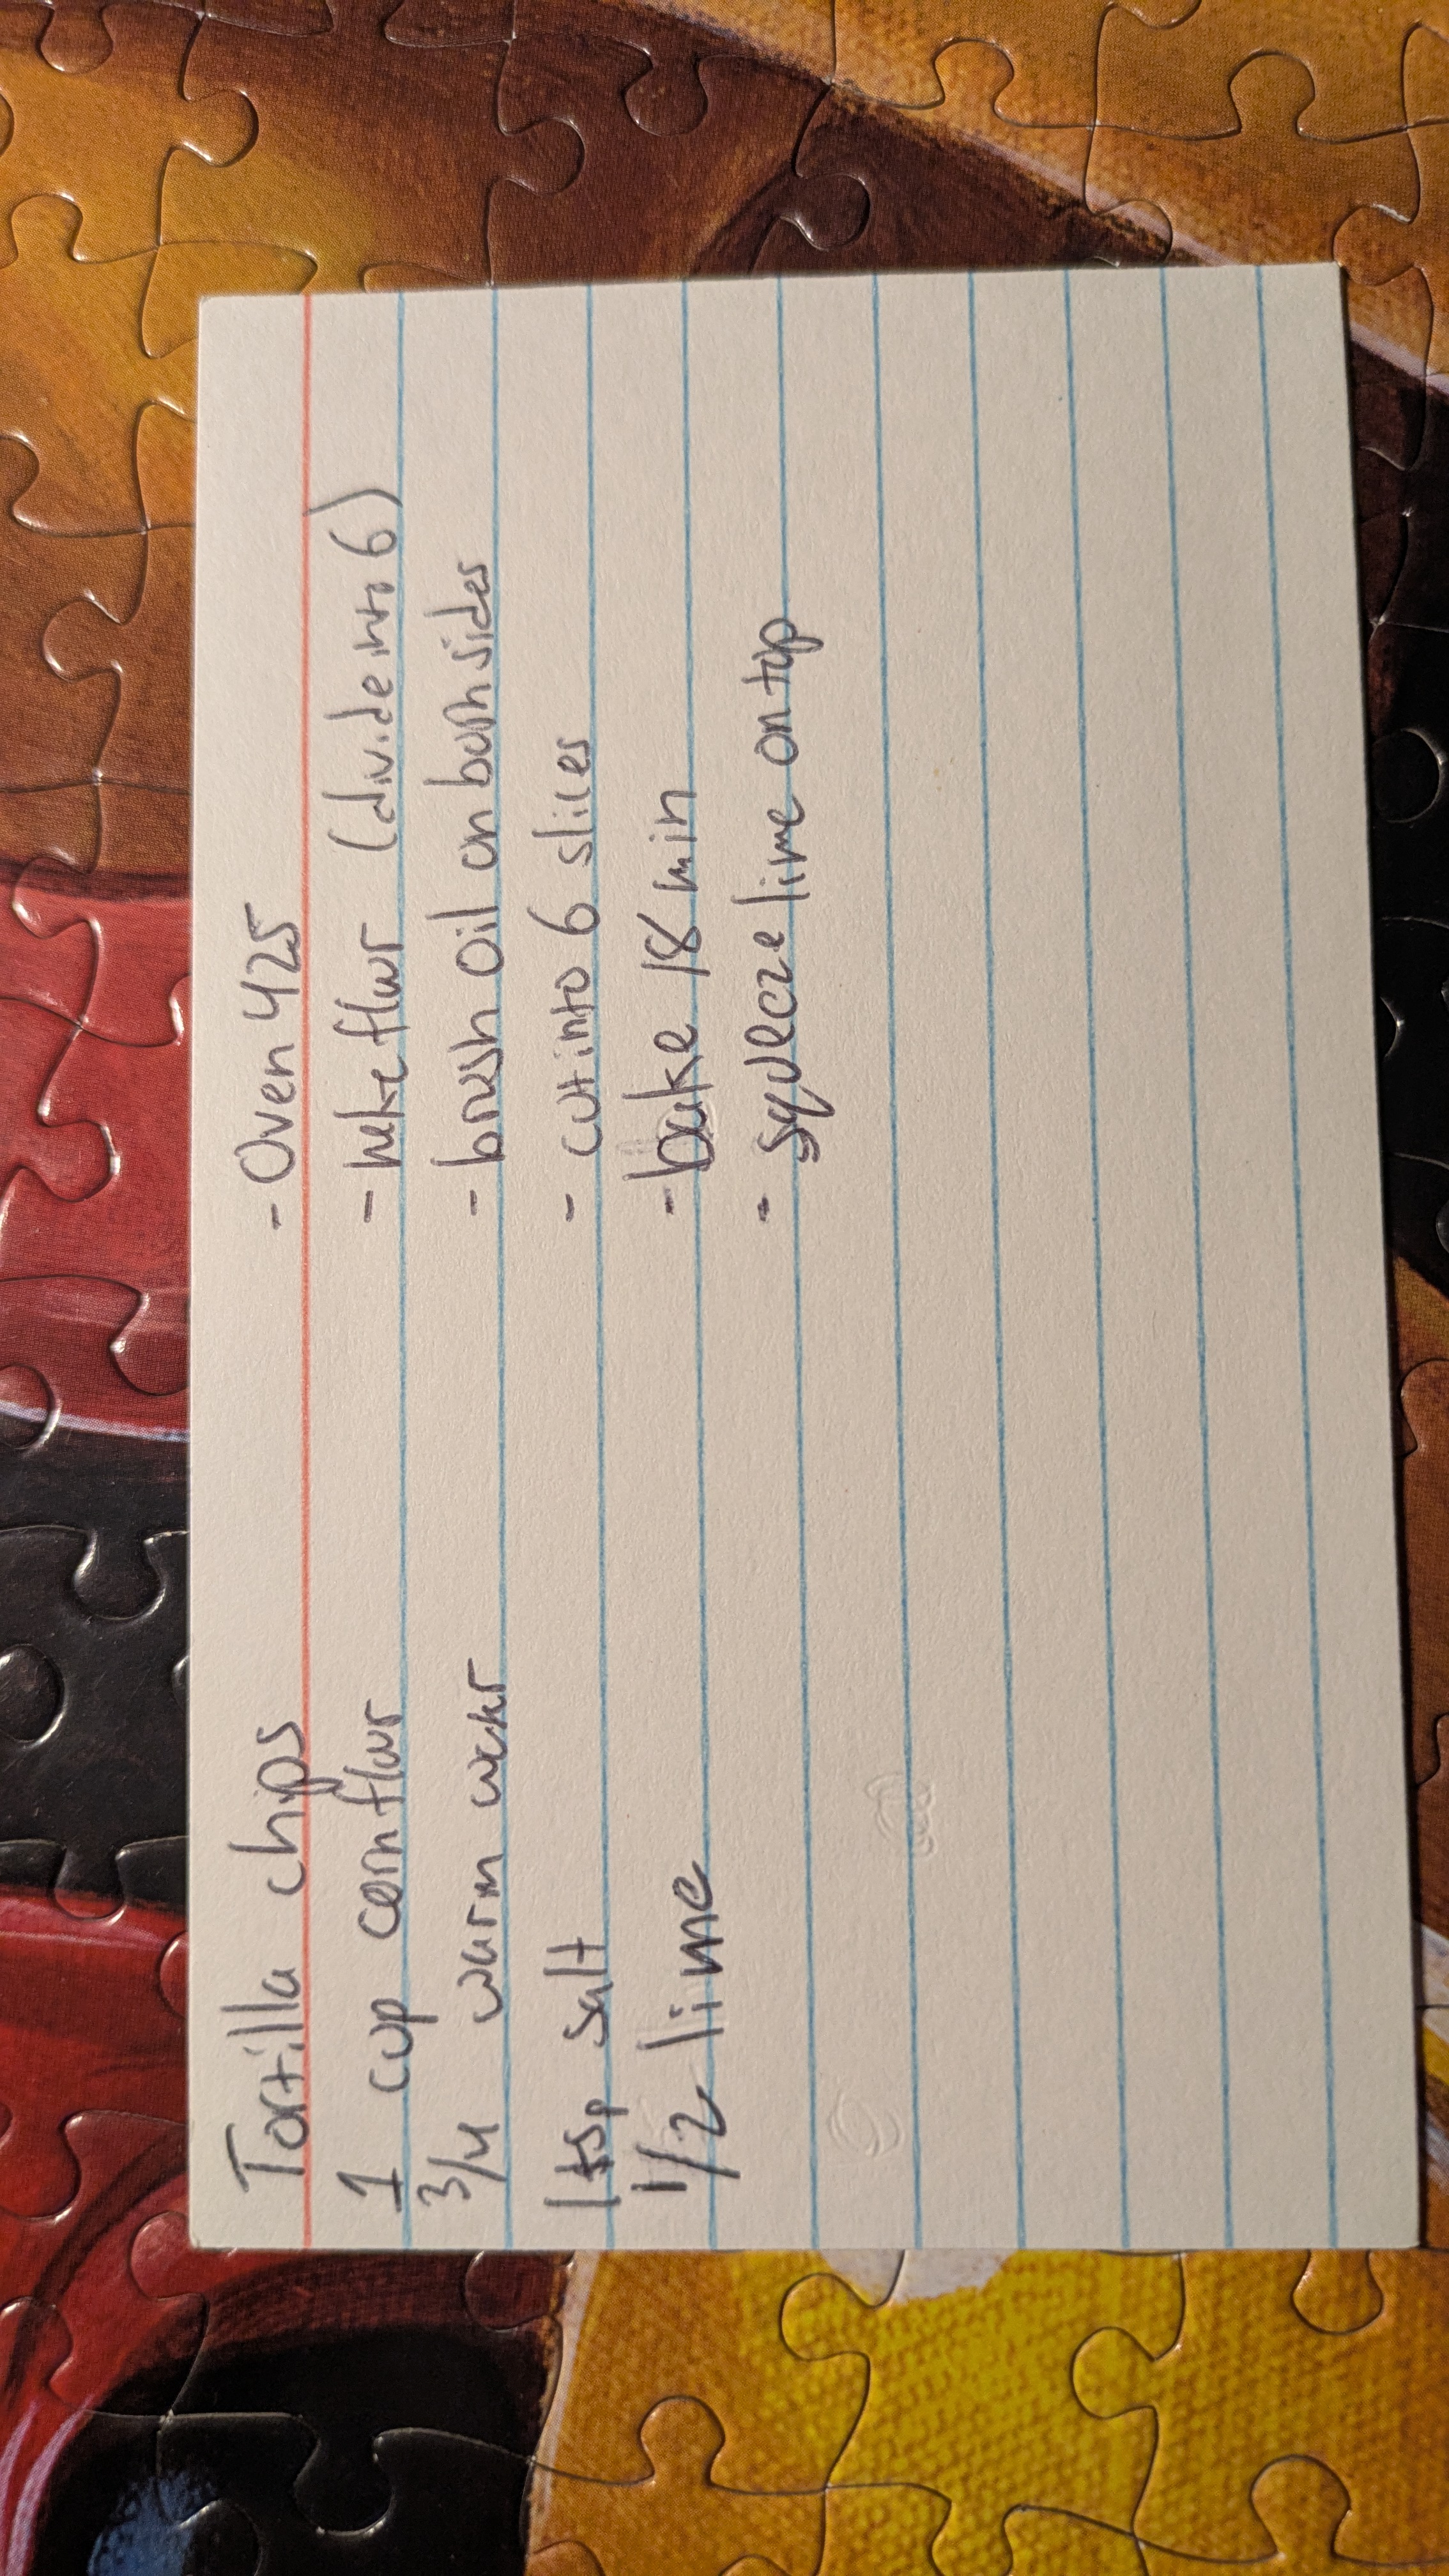 Tortilla chips
1 cup corn flour
3/4 warm water
1 tsp salt
1/2 lime
- Oven 425
- make flour (divide into 6)
- brush oil on both sides
- cut into 6 slices
- bake 18 min
- squeeze lime on top